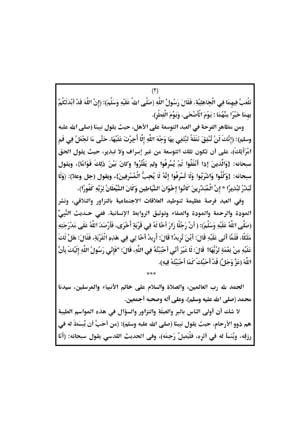 (٣)
نلعبُ فيهما في الجَاهِلِيَّةِ، فَقَالَ رَسُولُ اللَّهِ (صَلَّى اللهُ عَلَيْهِ وَسَلَّمَ): (إِنَّ اللَّهَ قَدْ أَبْدَلَكُمْ
بِهِمَا خَيْرًا مِنْهُمَا : يَوْمَ الْأَضْحَى، وَيَوْمَ الْفِطْرِ).
ومن مظاهر الفرحة في العيد التوسعة على الأهل، حيث يقول نبينا (صلى الله عليه
وسلم): (إِنَّكَ لَنْ تُنْفِقَ نَفَقَةً تَبْتَغِي بِهَا وَجْهَ اللَّهِ إِلَّا أُجِرْتَ عَلَيْهَا، حَتَّى مَا تَجْعَلُ فِي فَمِ
امْرَأَتِكَ)، على أن تكون تلك التوسعة من غير إسراف ولا تبذير، حيث يقول الحق
سبحانه: {وَالَّذِينَ إِذَا أَنْفَقُوا لَمْ يُسْرِفُوا وَلَمْ يَقْتُرُوا وَكَانَ بَيْنَ ذَلِكَ قَوَامًا}، ويقول
سبحانه: {وَكُلُوا وَاشْرَبُوا وَلَا تُسْرِفُوا إِنَّهُ لَا يُحِبُّ الْمُسْرِفِينَ}، ويقول (جل وعلا): {وَلَا
تُبَذِّرْ تَبْذِيرًا * إِنَّ الْمُبَذِّرِينَ كَانُوا إِخْوَانَ الشَّيَاطِينِ وَكَانَ الشَّيْطَانُ لِرَبِّهِ كَفُورًا}.
وفي العيد فرصة عظيمة لتوطيد العلاقات الاجتماعية بالتزاور والتلاقي، ونشر
المودة والرحمة والمودة والصفاء وتوثيق الروابط الإنسانية، ففي حديث النَّبِيِّ
(صَلَّى اللَّهُ عَلَيْهِ وَسَلَّمَ): ( أَنَّ رَجُلًا زَارَ أَخًا لَهُ فِي قَرْيَةٍ أُخْرَى، فَأَرْصَدَ اللَّهُ عَلَى مَدْرَجَتِهِ
مَلَكًا، فَلَمَّا أَتَى عَلَيْهِ قَالَ: أَيْنَ تُرِيدُ؟ قَالَ: أُرِيدُ أَخًا لِي فِي هَذِهِ الْقَرْيَةِ، قَالَ: هَلْ لَكَ
عَلَيْهِ مِنْ نِعْمَةٍ تَرُبُّهَا؟ قَالَ: لَا غَيْرَ أَنِّي أَحْبَبْتُهُ فِي اللَّهِ، قَالَ: "فَإِنِّي رَسُولُ اللَّهِ إِلَيْكَ بِأَنَّ
اللَّهَ (عَزَّ وَجَلَّ) قَدْ أَحَبَّكَ كَمَا أَحْبَبْتَهُ فِيهِ).
***
الحمد لله رب العالمين، والصلاة والسلام على خاتم الأنبياء والمرسلين، سيدنا
محمد (صلى الله عليه وسلم)، وعلى آله وصحبه أجمعين.
لا شك أن أولى الناس بالبر والصلة والتزاور والسؤال في هذه المواسم الطيبة
هم ذوو الأرحام، حيث يقول نبينا (صلى الله عليه وسلم): (من أحبَّ أن يُبسَطَ له في
رزقِه، ويُنسأَ له في أثرِه، فلْيصلْ رحِمَه)، وفي الحديث القدسي يقول سبحانه: (أَنَا